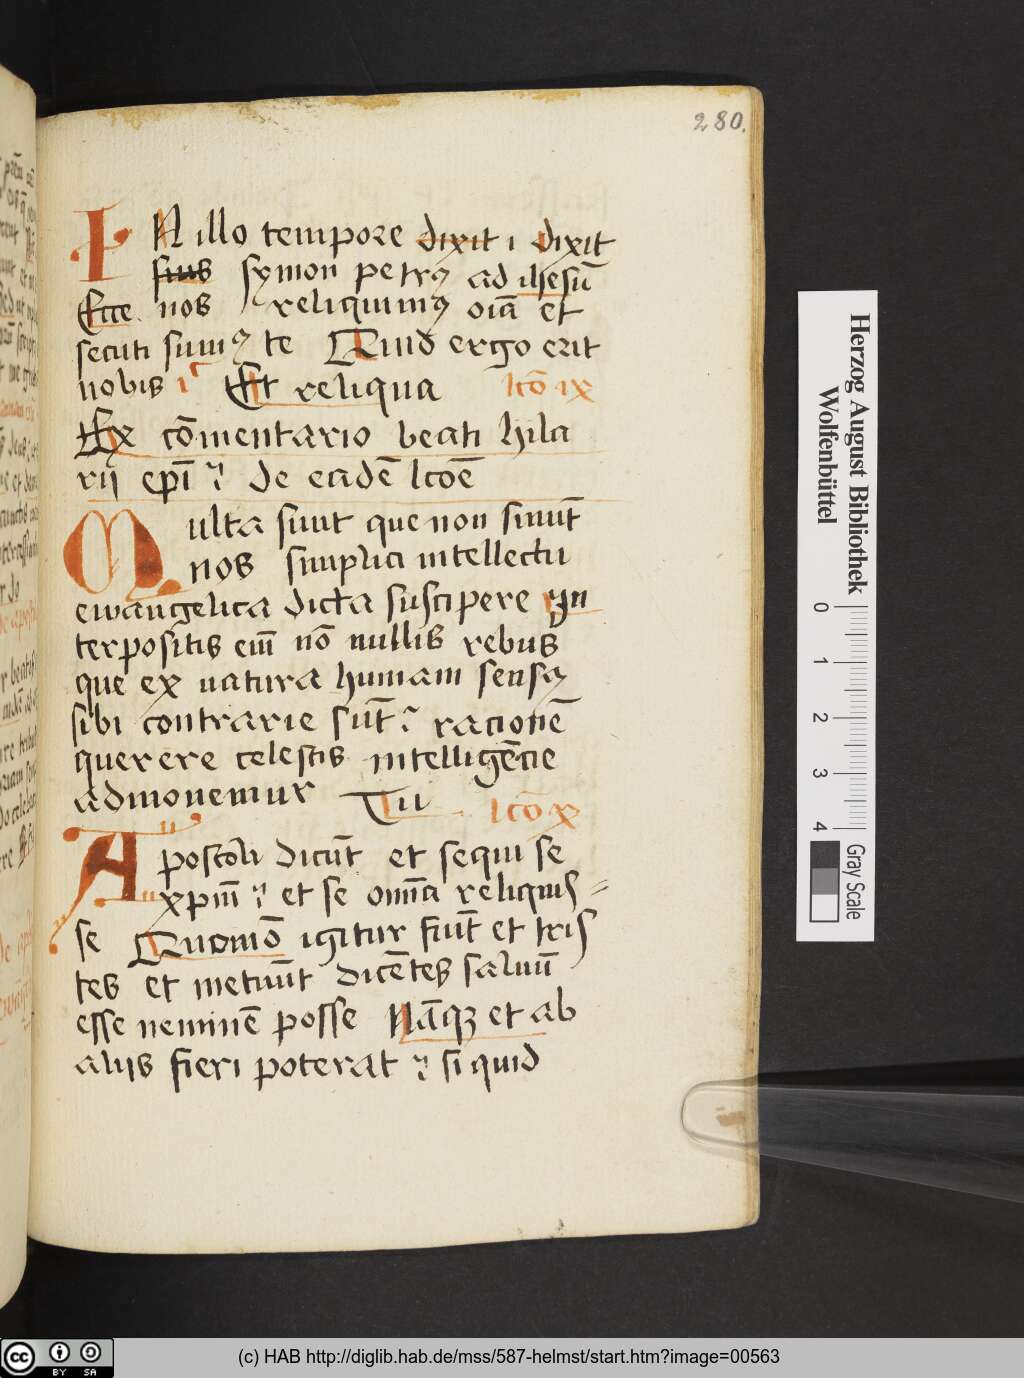 280.
IN illo tempore dixit i dixit
sius symon petrꝰ ad ihesū
Ecce nos reliquimꝰ oīa et
secuti sumꝰ te Quid ergo erit
nobis Et reliqua lcō ix
Ex cōmentario beati hila
rij epī de eadē lcōe
Multa sunt que non sinūt
nos simplici intellectu
ewangelica dicta suscipere yn
terpositis eīm nō nullis rebus
que ex natura humani sensꝰ
sibi contrarie sūt racionē
querere celestis intelligēcie
admonemur Tu lcō x
Apostoli dicūt et sequi se
xpm̄ et se omīa reliquis=
se Quomō igitur fiūt et tris
tes et metuūt dicētes saluū
esse neminē posse Nāqꝫ et ab
alijs fieri poterat si quid
Herzog August Bibliothek
Wolfenbüttel
0 1 2 3 4
Gray Scale
cc BY SA
(c) HAB http://diglib.hab.de/mss/587-helmst/start.htm?image=00563